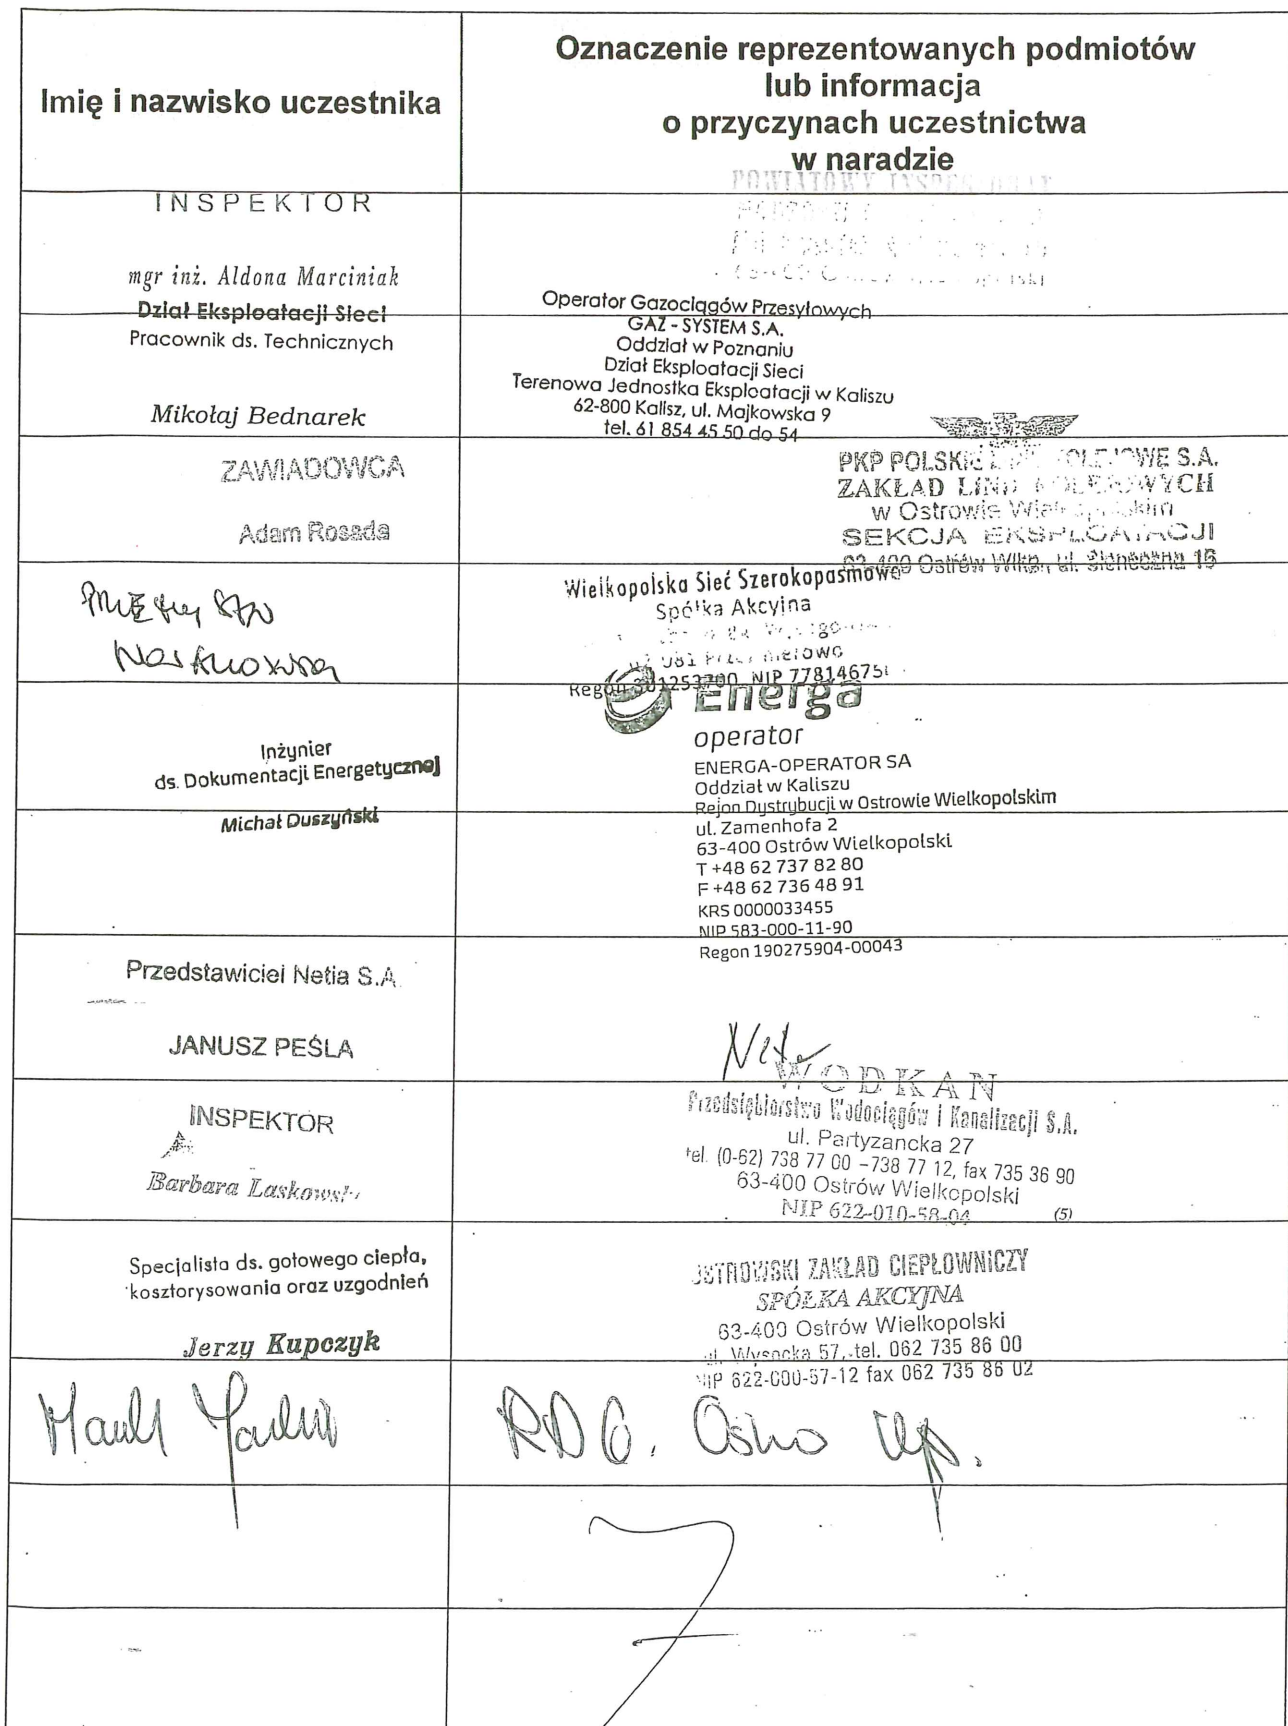 Imię i nazwisko uczestnika
Oznaczenie reprezentowanych podmiotów
lub informacja
o przyczynach uczestnictwa
w naradzie
INSPEKTOR
mgr inż. Aldona Marciniak
POWIATOWY
Dział Eksploatacji Sieci
Pracownik ds. Technicznych
Mikołaj Bednarek
Operator Gazociągów Przesyłowych
GAZ - SYSTEM S.A.
Oddział w Poznaniu
Dział Eksploatacji Sieci
Terenowa Jednostka Eksploatacji w Kaliszu
62-800 Kalisz, ul. Majkowska 9
tel. 61 854 45 50 do 54
ZAWIADOWCA
Adam Rosada
PKP POLSKIE S.A.
ZAKŁAD
w Ostrowie
SEKCJA EKSPLOATACJI
63-400 Ostrów Wlkp., ul. 16
Wielkopolska Sieć Szerokopasmowa
Spółka Akcyjna
Regon NIP
Inżynier
ds. Dokumentacji Energetycznej
Michał Duszyński
Energa
operator
ENERGA-OPERATOR SA
Oddział w Kaliszu
Rejon Dystrybucji w Ostrowie Wielkopolskim
ul. Zamenhofa 2
63-400 Ostrów Wielkopolski
T +48 62 737 82 80
F +48 62 736 48 91
KRS 0000033455
NIP 583-000-11-90
Regon 190275904-00043
Przedstawiciel Netia S.A.
JANUSZ PEŚLA
INSPEKTOR
Barbara
WODKAN
Przedsiębiorstwo Wodociągów i Kanalizacji S.A.
ul. Partyzancka 27
tel. (0-62) 738 77 00 -738 77 12, fax 735 36 90
63-400 Ostrów Wielkopolski
NIP 622-010-58-04 (5)
Specjalista ds. gotowego ciepła,
kosztorysowania oraz uzgodnień
Jerzy Kupczyk
OSTROWSKI ZAKŁAD CIEPŁOWNICZY
SPÓŁKA AKCYJNA
63-400 Ostrów Wielkopolski
ul. Wysocka 57, tel. 062 735 86 00
NIP 622-000-57-12 fax 062 735 86 02